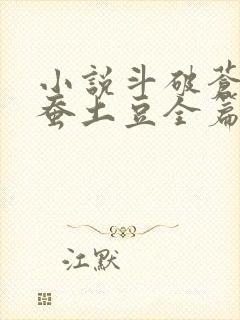 小說斗破蒼
蚕土豆全篇
江默